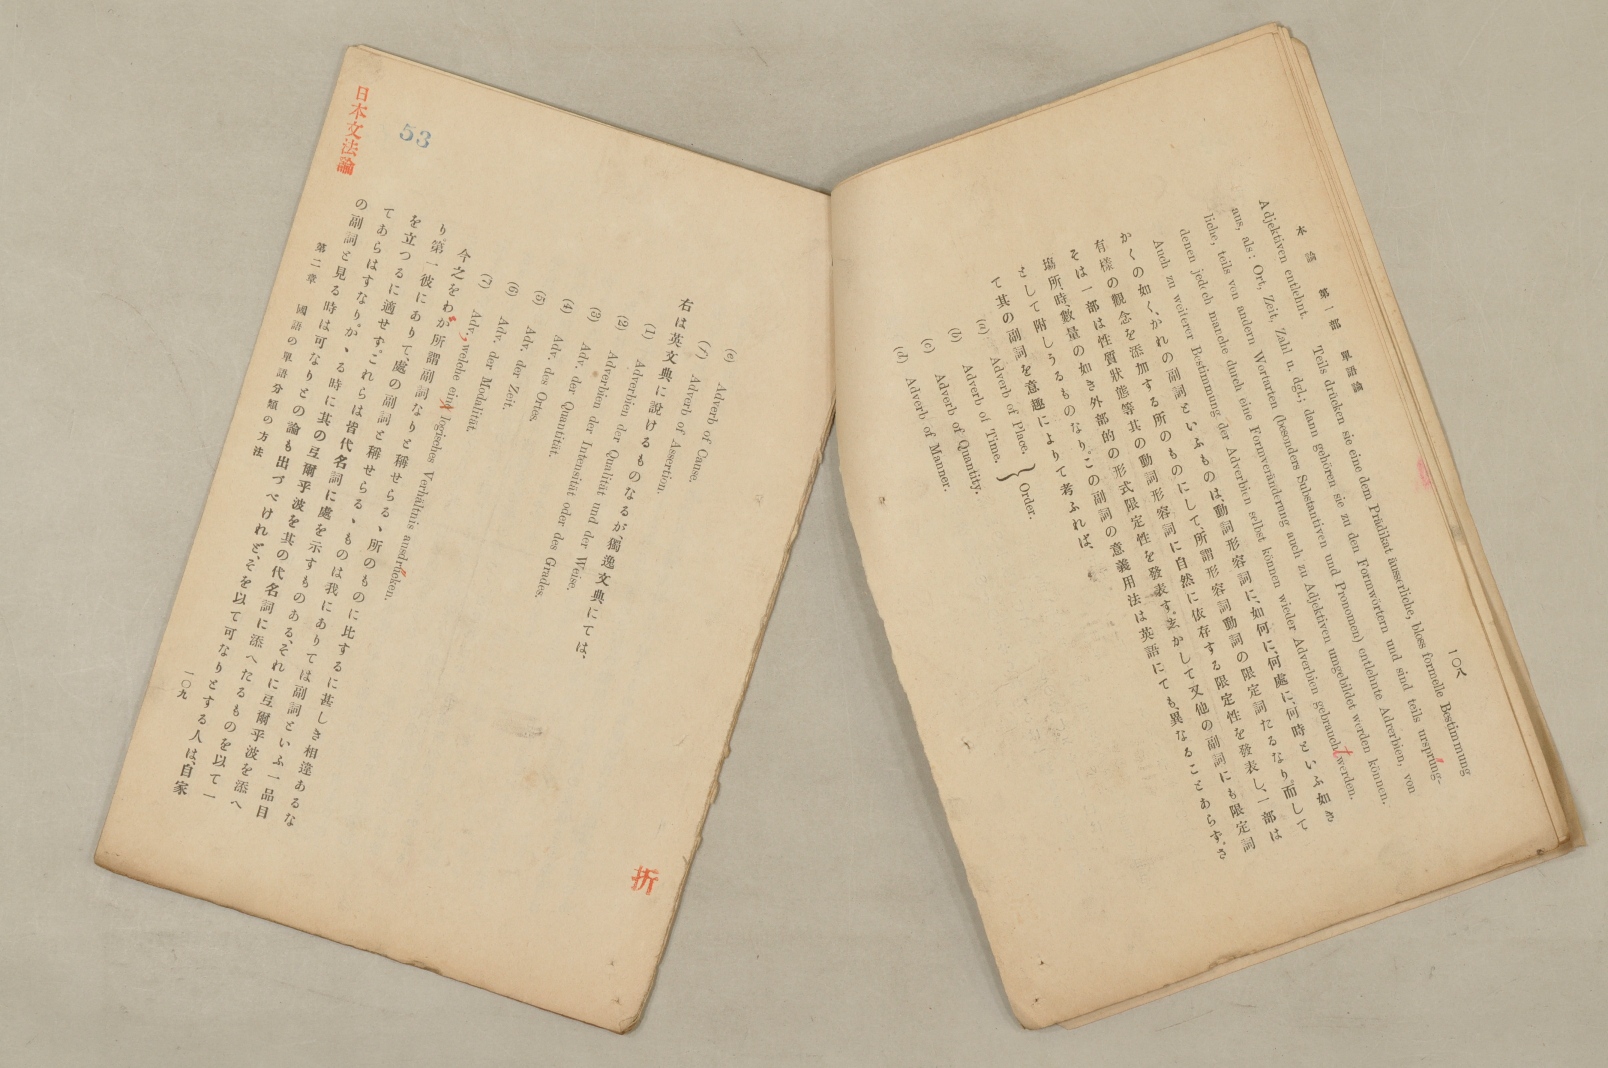 本論　第一部　單語論
一〇八
Adjektiven entlehnt. Teils drücken sie eine dem Prädikat äusserliche, bloss formelle Bestimmung
aus, als: Ort, Zeit, Zahl u. dgl.; dann gehören sie zu den Formwörtern und sind teils ursprüng-
liche, teils von andern Wortarten (besonders Substantiven und Pronomen) entlehnte Adverbien; von
denen jedoch manche durch eine Formveränderung auch zu Adjektiven umgebildet werden können.
Auch zu weiterer Bestimmung der Adverbien selbst können wieder Adverbien gebraucht werden.
かくの如く、かれの副詞といふものは、動詞形容詞に、如何に、何處に、何時といふ如き
有樣の觀念を添加する所のものにして、所謂形容詞動詞の限定詞たるなり。而して
そは一部は性質狀態等其の動詞形容詞に自然に依存する限定性を發表し、一部は
塲所、時、數量の如き外部的の形式限定性を發表す。然かして又他の副詞にも限定詞
として附しうるものなり。この副詞の意義用法は英語にても、異なることあらず。さ
て其の副詞を意趣によりて考ふれば、
(a) Adverb of Place. } Order.
(b) Adverb of Time.
(c) Adverb of Quantity.
(d) Adverb of Manner.
(e) Adverb of Cause.
(f) Adverb of Assertion.
右は英文典に說けるものなるが、獨逸文典にては、
(1) Adverbien der Qualität und der Weise.
(2) Adverbien der Intensität oder des Grades.
(3) Adv. der Quantität.
(4) Adv. des Ortes.
(5) Adv. der Zeit.
(6) Adv. der Modalität.
(7) Adv., welche eing logisches Verhältnis ausdrücken.
今之をわが所謂副詞なりと稱せらるゝ所のものに比するに甚しき相違あるな
り。第一彼にありて、處の副詞と稱せらるゝものは我にありては副詞といふ一品目
を立つるに適せず。これらは皆代名詞に處を示すものある、それに弖爾乎波を添へ
てあらはすなり。かゝる時に其の弖爾乎波を其の代名詞に添へたるものを以て一
の副詞と見る時は可なりとの論も出づべけれど、そを以て可なりとする人は、自家
第二章　國語の單語分類の方法
一〇九
日本文法論
53
折